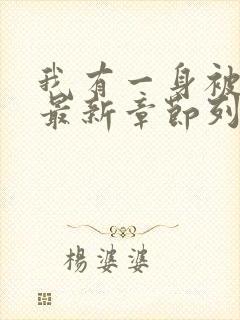 我有一身被
最新章節列
楊婆婆